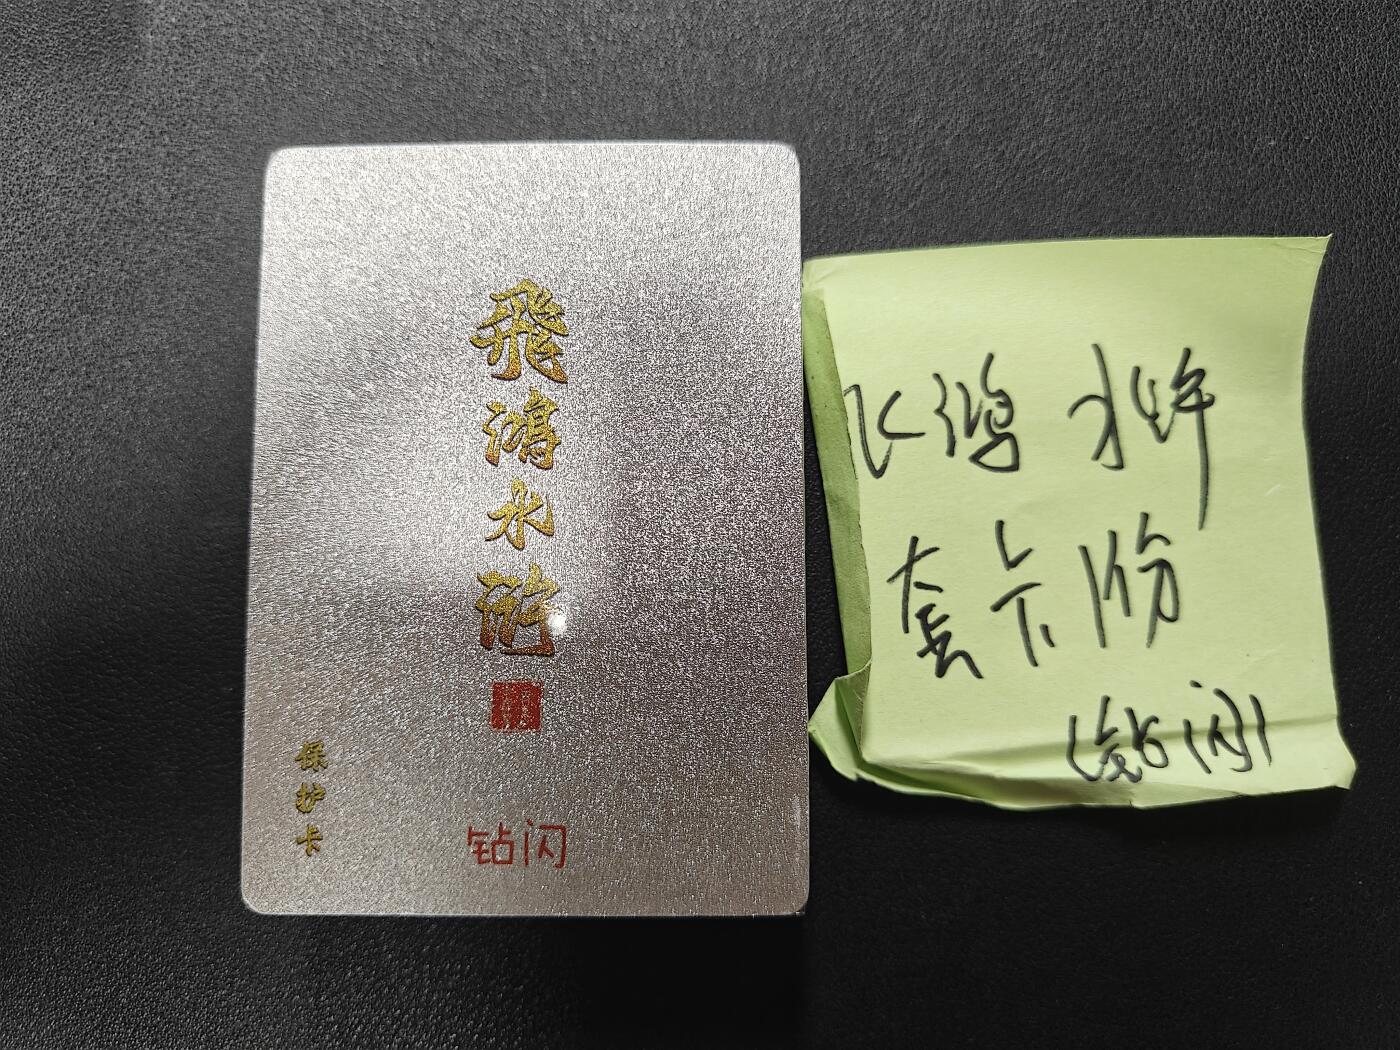 飛鴻水滸
保护卡
钻闪
飞鸿水浒
套卡1份
(钻闪)